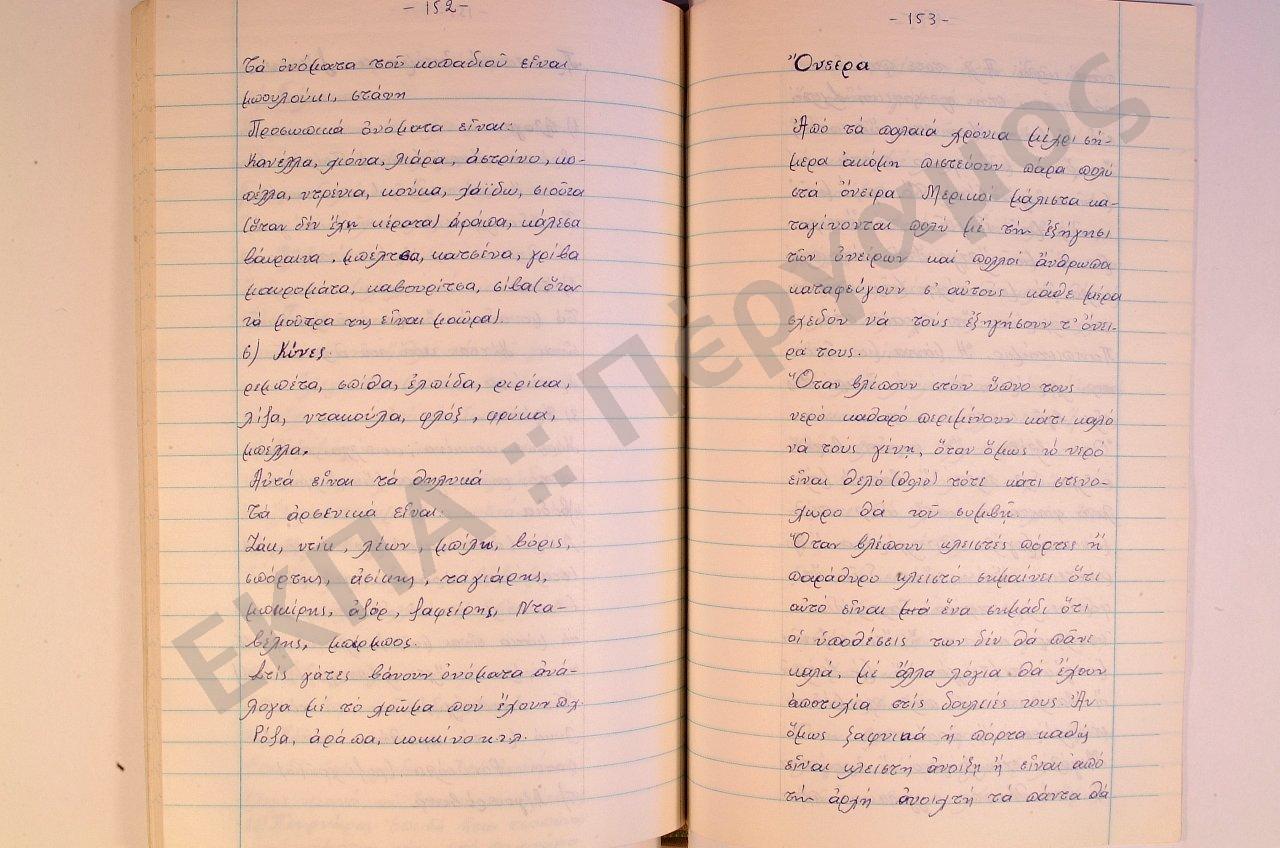 - 152 -
τά ὀνόματα τοῦ κοπαδιοῦ εἶναι
μπουλούκι, στάνη
Προσωπικά ὀνόματα εἶναι:
Κανέλλα, χιόνα, λιάρα, ἀστρίνο, κο-
πέλλα, ντρένια, κούκα, χάϊδω, σιούτα
(ὅταν δέν ἔχη κέρατα) ἀράπα, κάλεσα
βάκραινα, μπέλτσα, κατσένα, γρίβα
μαυρομάτα, καβουρίτσα, σίβα (ὅταν
τά μοῦτρα της εἶναι μαῦρα).
6) Κύνες.
ρεμπέτα, σπίθα, ἐλπίδα, ριρίκα,
λίζα, ντακούλα, φλόξ, φρύκα,
μπέλλα.
Αὐτά εἶναι τά θηλυκά
Τά ἀρσενικά εἶναι:
Ζάκ, ντίκ, λέων, μπίλης, βόρις,
σπόρτης, ἀσίκης, ταχιάρης,
μπεκίρης, ἀζόρ, ζαφείρης, Ντα-
βέλης, μπέρμπος.
Στίς γάτες βάνουν ὀνόματα ἀνά-
λογα μέ τό χρῶμα πού ἔχουν π.χ.
Ρόζα, ἀράπα, κοκκίνο κ.τ.λ.
- 153 -
Ὄνειρα
Ἀπό τά παλαιά χρόνια μέχρι σή-
μερα ἀκόμη πιστεύουν πάρα πολύ
στά ὄνειρα. Μερικοί μάλιστα κα-
ταγίνονται πολύ μέ τήν ἐξήγησι
τῶν ὀνείρων καί πολλοί ἄνθρωποι
καταφεύγουν σ' αὐτούς κάθε μέρα
σχεδόν νά τούς ἐξηγήσουν τ' ὄνει-
ρά τους.
Ὅταν βλέπουν στόν ὕπνο τους
νερό καθαρό περιμένουν κάτι καλό
νά τούς γένη, ὅταν ὅμως τό νερό
εἶναι θελό (θολό) τότε κάτι στενό-
χωρο θά τοῦ συμβῆ
Ὅταν βλέπουν κλειστές πόρτες ἤ
παράθυρο κλειστό σημαίνει ὅτι
αὐτό εἶναι ἕνα σημάδι ὅτι
οἱ ὑποθέσεις των δέν θά πᾶνε
καλά, μέ ἄλλα λόγια θά ἔχουν
ἀποτυχία στίς δουλειές τους. Ἄν
ὅμως ξαφνικά ἡ πόρτα καθώς
εἶναι κλειστή ἀνοίξη ἤ εἶναι ἀπό
τήν ἀρχή ἀνοιχτή τά πάντα θά
ΕΚΠΑ :: Πέργαμος